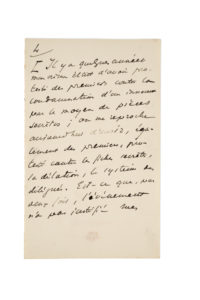 4
Il y a quelques années
mon vieux était d'avoir pro-
testé des premiers contre la
condamnation d'un innocent
par le moyen de pièces
secrètes ; on me reproche
aujourd'hui d'avoir, éga-
lement des premiers, pro-
testé contre la fiche secrète,
la délation, le système des
délégués. Est-ce que, ces
deux fois, l'événement
n'a pas justifié mes